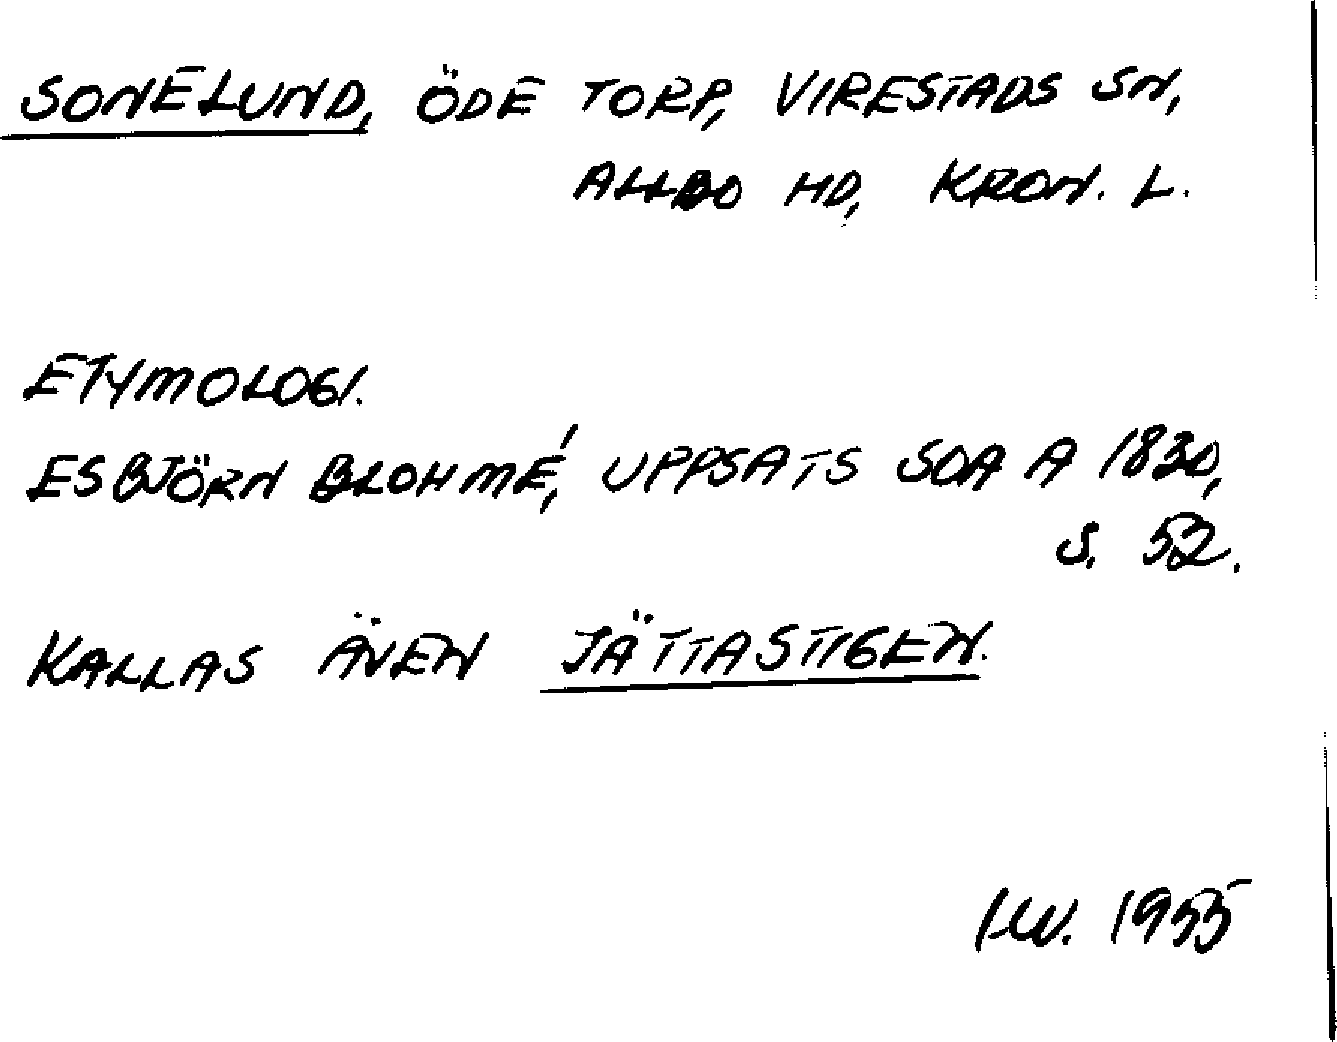 SONELUND, ÖDE TORP, VIRESTADS SN,
ALLBO HD, KRON. L.
ETYMOLOGI.
ESBJÖRN BLOHMÉ, UPPSATS SOA A 1830,
S. 52.
KALLAS ÄVEN JÄTTASTIGEN.
I.W. 1955